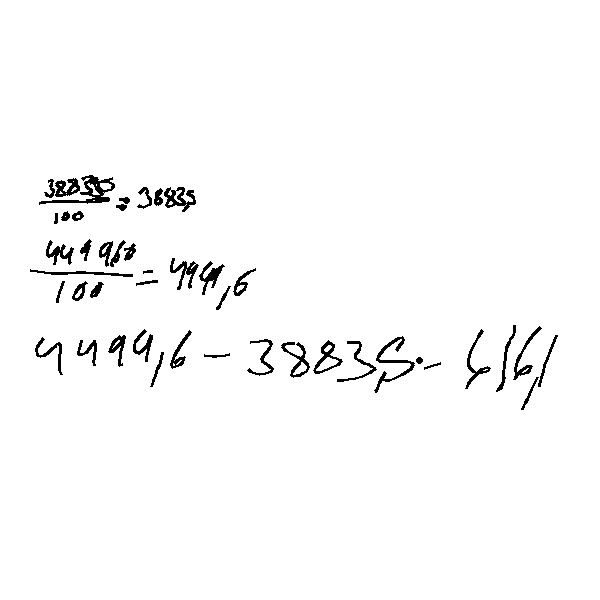 388350
100 = 3883,5
449960
100 = 4499,6
4499,6 - 3883,5 = 616,1